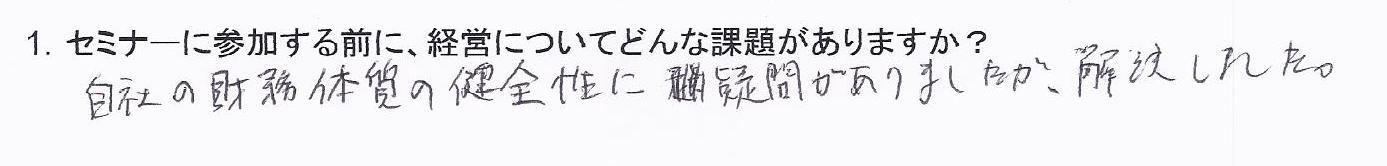 1. セミナーに参加する前に、経営についてどんな課題がありますか？
自社の財務体質の健全性に疑問がありましたが、解決しました。